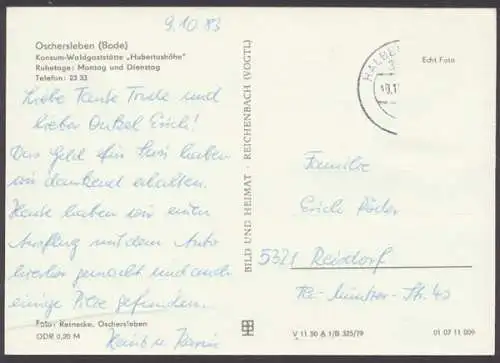 9.10.83
Oschersleben (Bode)
Konsum-Waldgaststätte „Hubertushöhe"
Ruhetage: Montag und Dienstag
Telefon: 23 33
Liebe Tante Trude und
lieber Onkel Erich!
Das Geld für haben
wir dankend erhalten.
Heute haben wir einen
Ausflug mit dem Auto
hierher gemacht und auch
einige Pilze gefunden.
Foto: Reinecke, Oschersleben
DDR 0,20 M
u. Karin
BILD UND HEIMAT · REICHENBACH (VOGTL)
HALBE
Echt Foto
Familie
Erich Röder
5321 Reisdorf
Th.-Müntzer-Str. 40
V 11.50 A 1/B 325/79
01 07 11 009